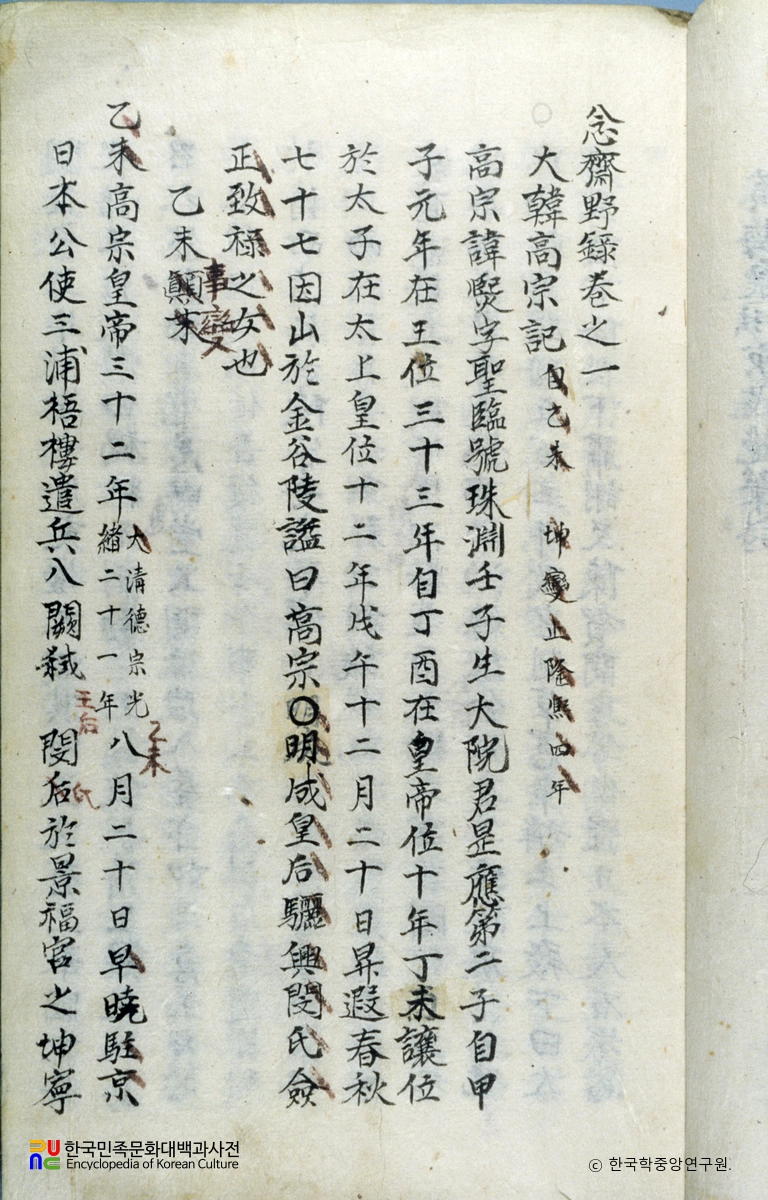 念齋野錄卷之一
大韓高宗記 自乙未 坤變 止隆熙四年
高宗諱熙字聖臨號珠淵壬子生大院君昰應第二子自甲
子元年在王位三十三年自丁酉在皇帝位十年丁未讓位
於太子在太上皇位十二年戊午十二月二十日昇遐春秋
七十七因山於金谷陵諡曰高宗〇明成皇后驪興閔氏僉
正致祿之女也
乙未顚末
事變
乙未高宗皇帝三十二年 大淸德宗光緖二十一年 八月二十日早曉駐京
乙未
日本公使三浦梧樓遣兵入闕弑 閔后於景福宮之坤寧
王后
氏
한국민족문화대백과사전
Encyclopedia of Korean Culture
© 한국학중앙연구원.